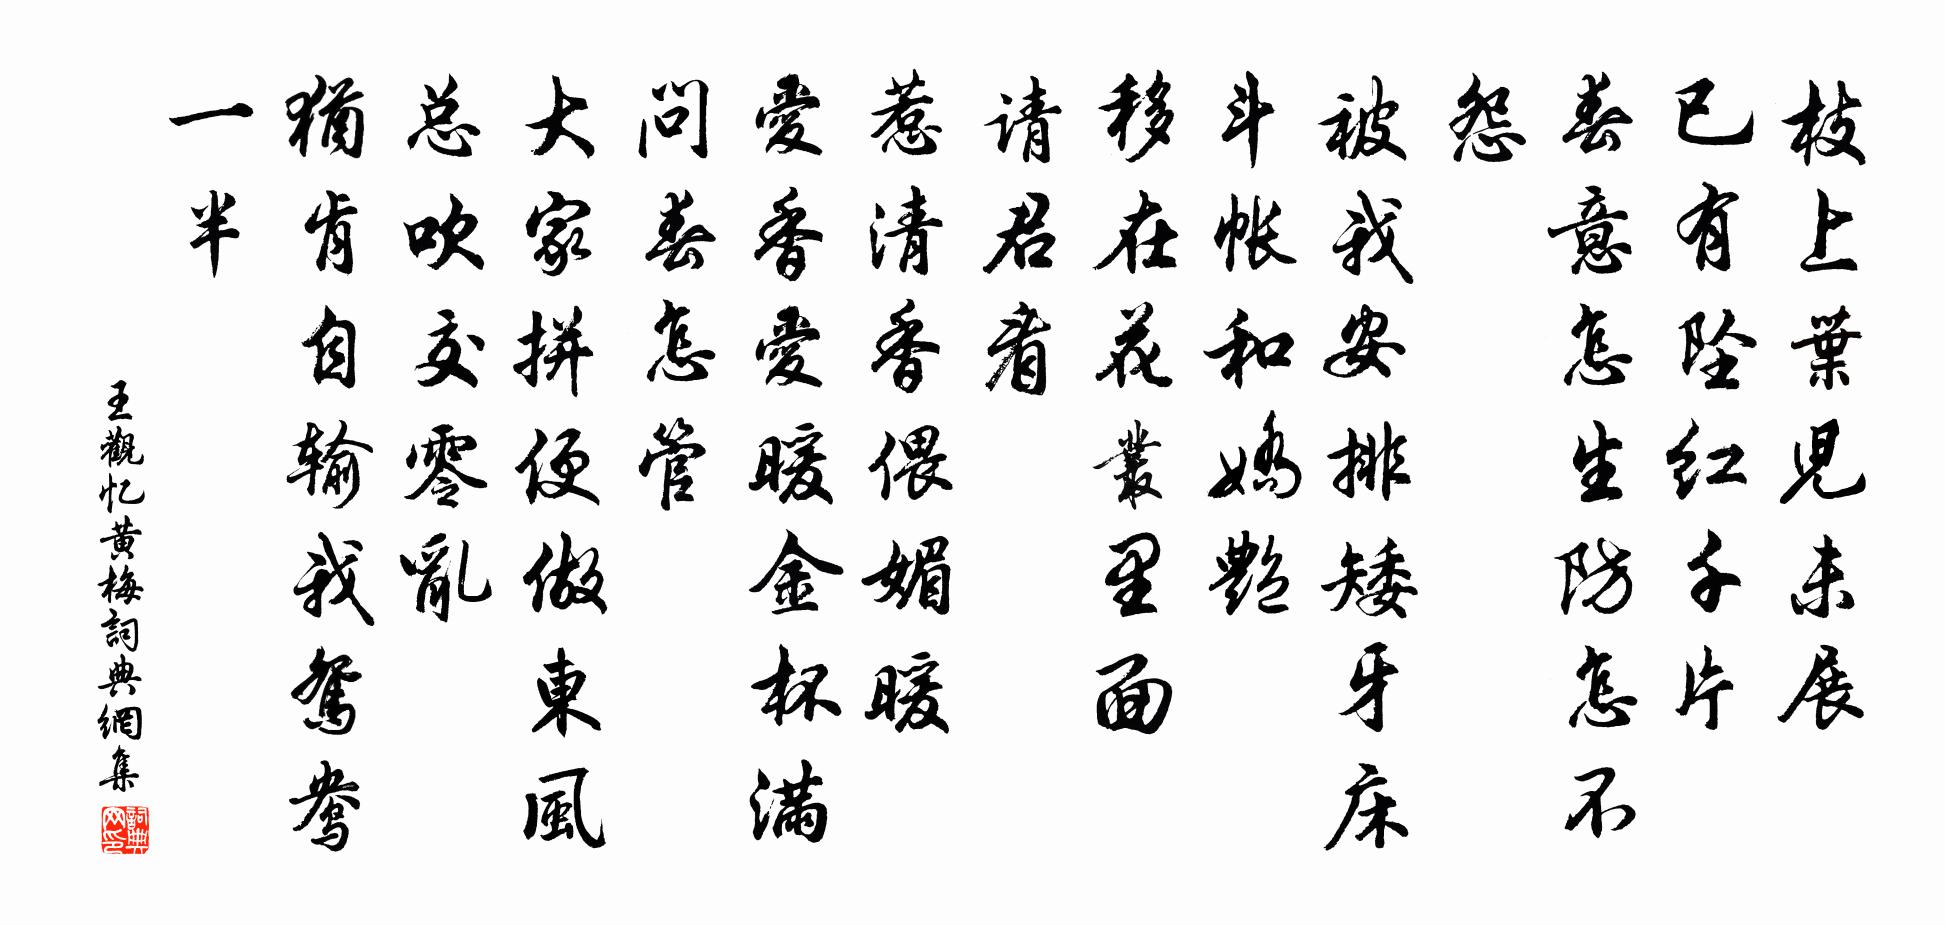 枝上葉兒未展
已有坠红千片
春意怎生防怎不
怨
被我安排矮牙床
斗帐和嬌艷
移在花叢里面
请君看
惹清香偎媚暖
愛香愛暖金杯满
问春怎管
大家拼便做東風
总吹交零亂
猶肯自输我鸳鸯
一半
王觀忆黄梅詞典網集
詞典网印